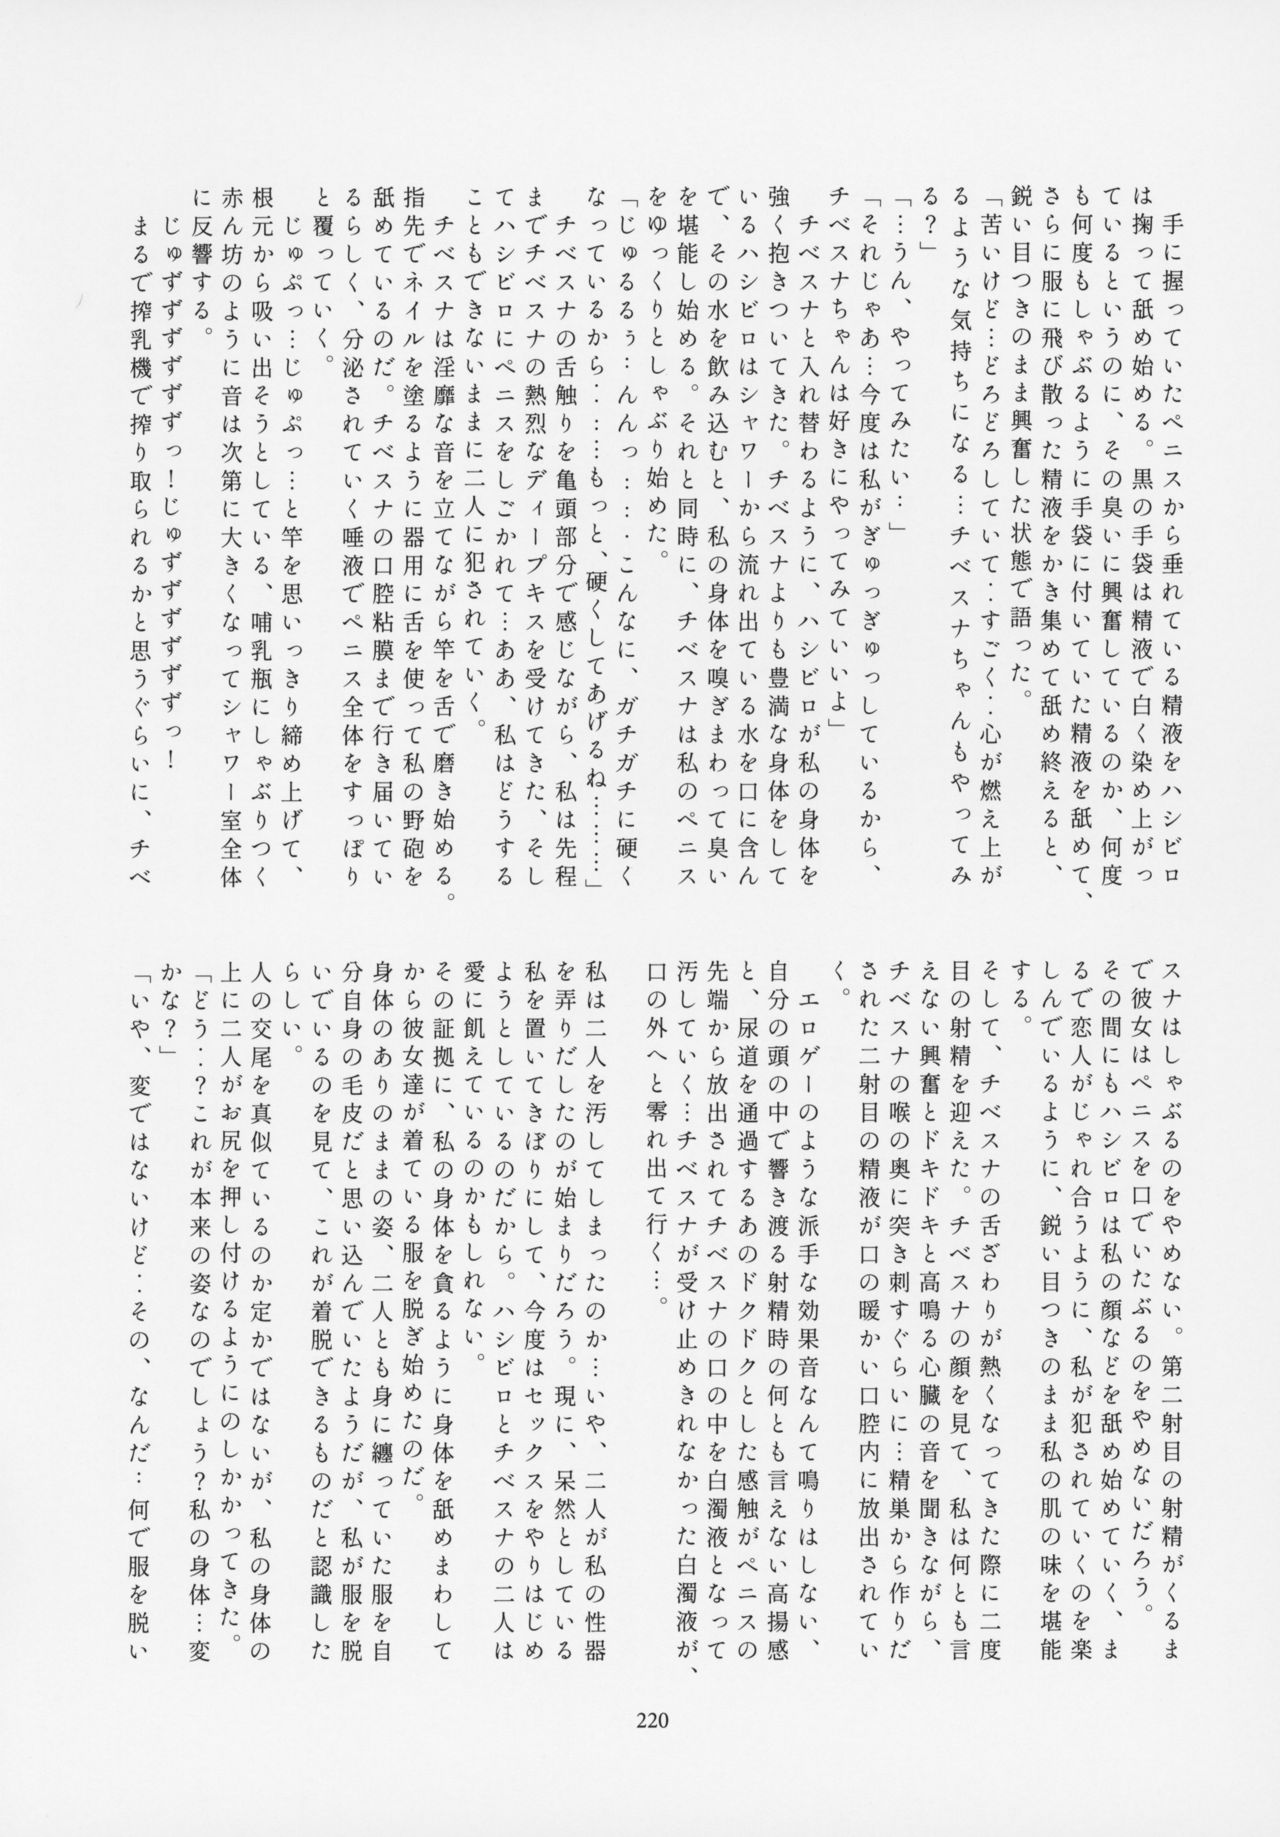 手に握っていたペニスから垂れている精液をハシビロ
は掬って舐め始める。黒の手袋は精液で白く染め上がっ
ているというのに、その臭いに興奮しているのか、何度
も何度もしゃぶるように手袋に付いていた精液を舐めて、
さらに服に飛び散った精液をかき集めて舐め終えると、
鋭い目つきのまま興奮した状態で語った。
「苦いけど…どろどろしていて‥すごく‥心が燃え上が
るような気持ちになる…チベスナちゃんもやってみ
る?」
「…うん、やってみたい…」
「それじゃあ…今度は私がぎゅっぎゅっしているから、
チベスナちゃんは好きにやってみていいよ」
チベスナと入れ替わるように、ハシビロが私の身体を
強く抱きついてきた。チベスナよりも豊満な身体をして
いるハシビロはシャワーから流れ出ている水を口に含ん
で、その水を飲み込むと、私の身体を嗅ぎまわって臭い
を堪能し始める。それと同時に、チベスナは私のペニス
をゆっくりとしゃぶり始めた。
「じゅるるぅ…んんっ…‥こんなに、ガチガチに硬く
なっているから‥……もっと、硬くしてあげるね………」
チベスナの舌触りを亀頭部分で感じながら、私は先程
までチベスナの熱烈なディープキスを受けてきた、そし
てハシビロにペニスをしごかれて…ああ、私はどうする
こともできないままに二人に犯されていく。
チベスナは淫靡な音を立てながら竿を舌で磨き始める。
指先でネイルを塗るように器用に舌を使って私の野砲を
舐めているのだ。チベスナの口腔粘膜まで行き届いてい
るらしく、分泌されていく唾液でペニス全体をすっぽり
と覆っていく。
じゅぷっ…じゅぷっ…と竿を思いっきり締め上げて、
根元から吸い出そうとしている、哺乳瓶にしゃぶりつく
赤ん坊のように音は次第に大きくなってシャワー室全体
に反響する。
じゅずずずずずずっ!じゅずずずずずずっ!
まるで搾乳機で搾り取られるかと思うぐらいに、チベ
スナはしゃぶるのをやめない。第二射目の射精がくるま
で彼女はペニスを口でいたぶるのをやめないだろう。
その間にもハシビロは私の顔などを舐め始めていく、ま
るで恋人がじゃれ合うように、私が犯されていくのを楽
しんでいるように、鋭い目つきのまま私の肌の味を堪能
する。
そして、チベスナの舌ざわりが熱くなってきた際に二度
目の射精を迎えた。チベスナの顔を見て、私は何とも言
えない興奮とドキドキと高鳴る心臓の音を聞きながら、
チベスナの喉の奥に突き刺すぐらいに…精巣から作りだ
された二射目の精液が口の暖かい口腔内に放出されてい
く。
エロゲーのような派手な効果音なんて鳴りはしない、
自分の頭の中で響き渡る射精時の何とも言えない高揚感
と、尿道を通過するあのドクドクとした感触がペニスの
先端から放出されてチベスナの口の中を白濁液となって
汚していく…チベスナが受け止めきれなかった白濁液が、
口の外へと零れ出て行く…。
私は二人を汚してしまったのか…いや、二人が私の性器
を弄りだしたのが始まりだろう。現に、呆然としている
私を置いてきぼりにして、今度はセックスをやりはじめ
ようとしているのだから。ハシビロとチベスナの二人は
愛に飢えているのかもしれない。
その証拠に、私の身体を貪るように身体を舐めまわして
から彼女達が着ている服を脱ぎ始めたのだ。
身体のありのままの姿、二人とも身に纏っていた服を自
分自身の毛皮だと思い込んでいたようだが、私が服を脱
いでいるのを見て、これが着脱できるものだと認識した
らしい。
人の交尾を真似ているのか定かではないが、私の身体の
上に二人がお尻を押し付けるようにのしかかってきた。
「どう‥?これが本来の姿なのでしょう?私の身体…変
かな?」
「いや、変ではないけど‥その、なんだ‥何で服を脱い
220